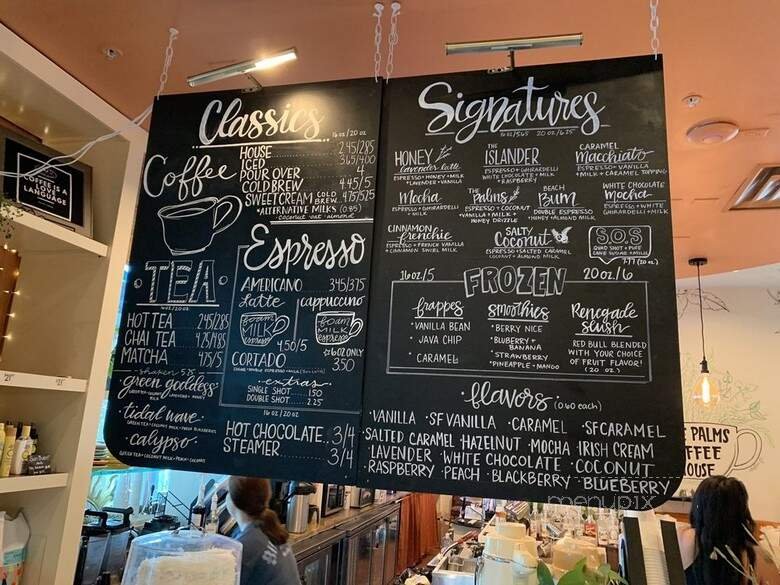 Classics
16 oz/20 oz
Coffee
HOUSE 2.45/2.85
ICED 3.65/4.00
POUR OVER 4
COLD BREW 4.45/5
SWEETCREAM COLD BREW 4.75/5.25
•ALTERNATIVE MILKS (0.85)
coconut oat almond
TEA
16 oz/20 oz
HOT TEA 2.45/2.85
CHAI TEA 4.75/4.85
MATCHA 4.75/5
shaken 5.25
green goddess
tidal wave
GREEN TEA • COCONUT MILK • FRESH BLUEBERRIES
calypso
GREEN TEA • COCONUT MILK • PEACH • COCONUT
Espresso
AMERICANO 3.45/3.75
latte
cappuccino
foam
MILK
espresso
foam
MILK
espresso
4.50/5
16 oz ONLY
CORTADO 3.50
extras
SINGLE SHOT 1.50
DOUBLE SHOT 2.25
16 oz/20 oz
HOT CHOCOLATE 3/4
STEAMER 3/4
Signatures
16 oz/5.65 20 oz/6.25
HONEY lavender latte
ESPRESSO • HONEY • MILK
• LAVENDER • VANILLA
THE
ISLANDER
ESPRESSO • GHIRARDELLI
WHITE CHOCOLATE • MILK
• RASPBERRY
CARAMEL
Macchiato
ESPRESSO • VANILLA
• MILK • CARAMEL TOPPING
Mocha
ESPRESSO • GHIRARDELLI
• MILK
The Palms
ESPRESSO • COCONUT
• VANILLA • MILK •
HONEY DRIZZLE
BEACH
Bum
DOUBLE ESPRESSO
• HONEY • ALMOND MILK
WHITE CHOCOLATE
mocha
ESPRESSO • WHITE
GHIRARDELLI • MILK
CINNAMON
frenchie
ESPRESSO • FRENCH VANILLA
• CINNAMON SWIRL MILK
SALTY
Coconut
ESPRESSO • SALTED CARAMEL
COCONUT • ALMOND MILK
S.O.S
QUAD SHOT • PURE
CANE SUGAR VANILLA
7.99 (20 oz)
16 oz/5
FROZEN
20 oz/6
frappes
• VANILLA BEAN
• JAVA CHIP
• CARAMEL
smoothies
• BERRY NICE
• BLUBERRY •
BANANA
• STRAWBERRY
• PINEAPPLE • MANGO
Renegade
slush
RED BULL BLENDED
WITH YOUR CHOICE
OF FRUIT FLAVOR!
(20 oz)
flavors (0.60 each)
• VANILLA • SF VANILLA • CARAMEL • SF CARAMEL
• SALTED CARAMEL HAZELNUT • MOCHA • IRISH CREAM
• LAVENDER • WHITE CHOCOLATE • COCONUT
• RASPBERRY • PEACH • BLACKBERRY • BLUEBERRY
COFFEE IS A
LANGUAGE
PALMS
FFEE
USE
menupix